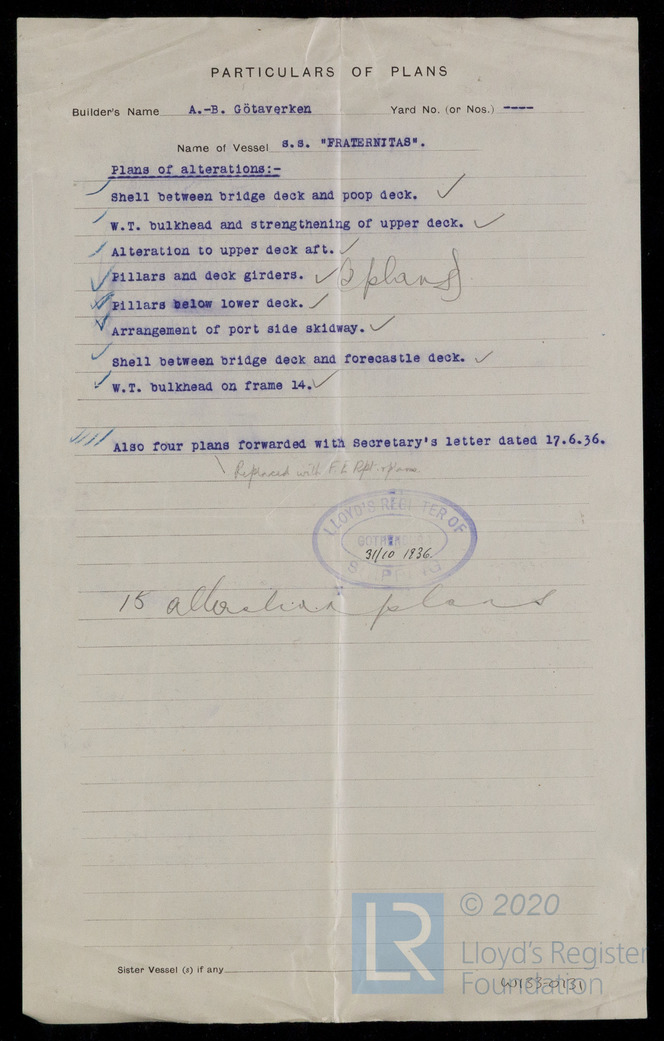 PARTICULARS OF PLANS
Builder's Name A.-B. Götaverken Yard No. (or Nos.) ----
Name of Vessel s.s. "FRATERNITAS".
Plans of alterations:-
Shell between bridge deck and poop deck.
W.T. bulkhead and strengthening of upper deck.
Alteration to upper deck aft.
Pillars and deck girders. (2 plans)
Pillars below lower deck.
Arrangement of port side skidway.
Shell between bridge deck and forecastle deck.
W.T. bulkhead on frame 14.
Also four plans forwarded with Secretary's letter dated 17.6.36.
Replaced with F.E. Rpt.
LLOYD'S REGISTER OF
31/10 1936.
SHIPPING
15 alteration plans
© 2020
LR
Lloyd's Register
Foundation
Sister Vessel (s) if any
W1133-0131